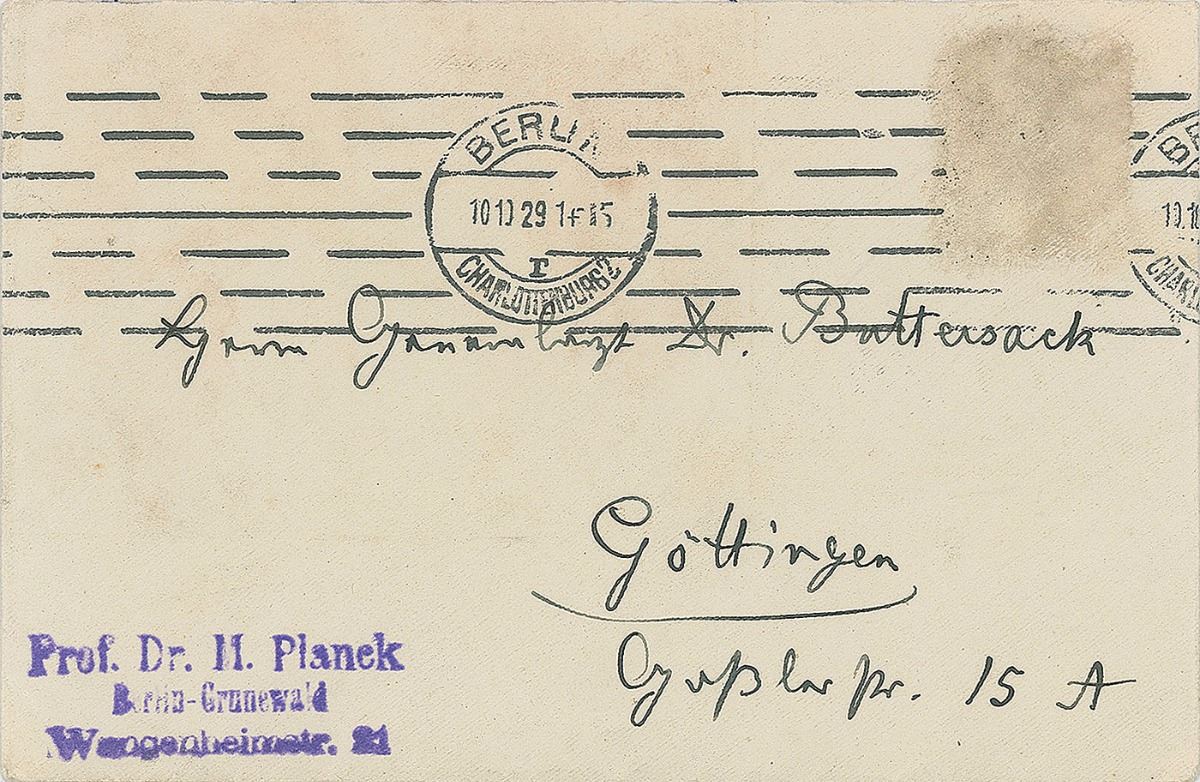 BERLIN
10 10 29
CHARLOTTENBURG 2
r
Herrn Generalarzt Dr. Buttersack
Göttingen
Goßlerstr. 15 A
Prof. Dr. M. Planck
Berlin-Grunewald
Wangenheimstr. 21
BE